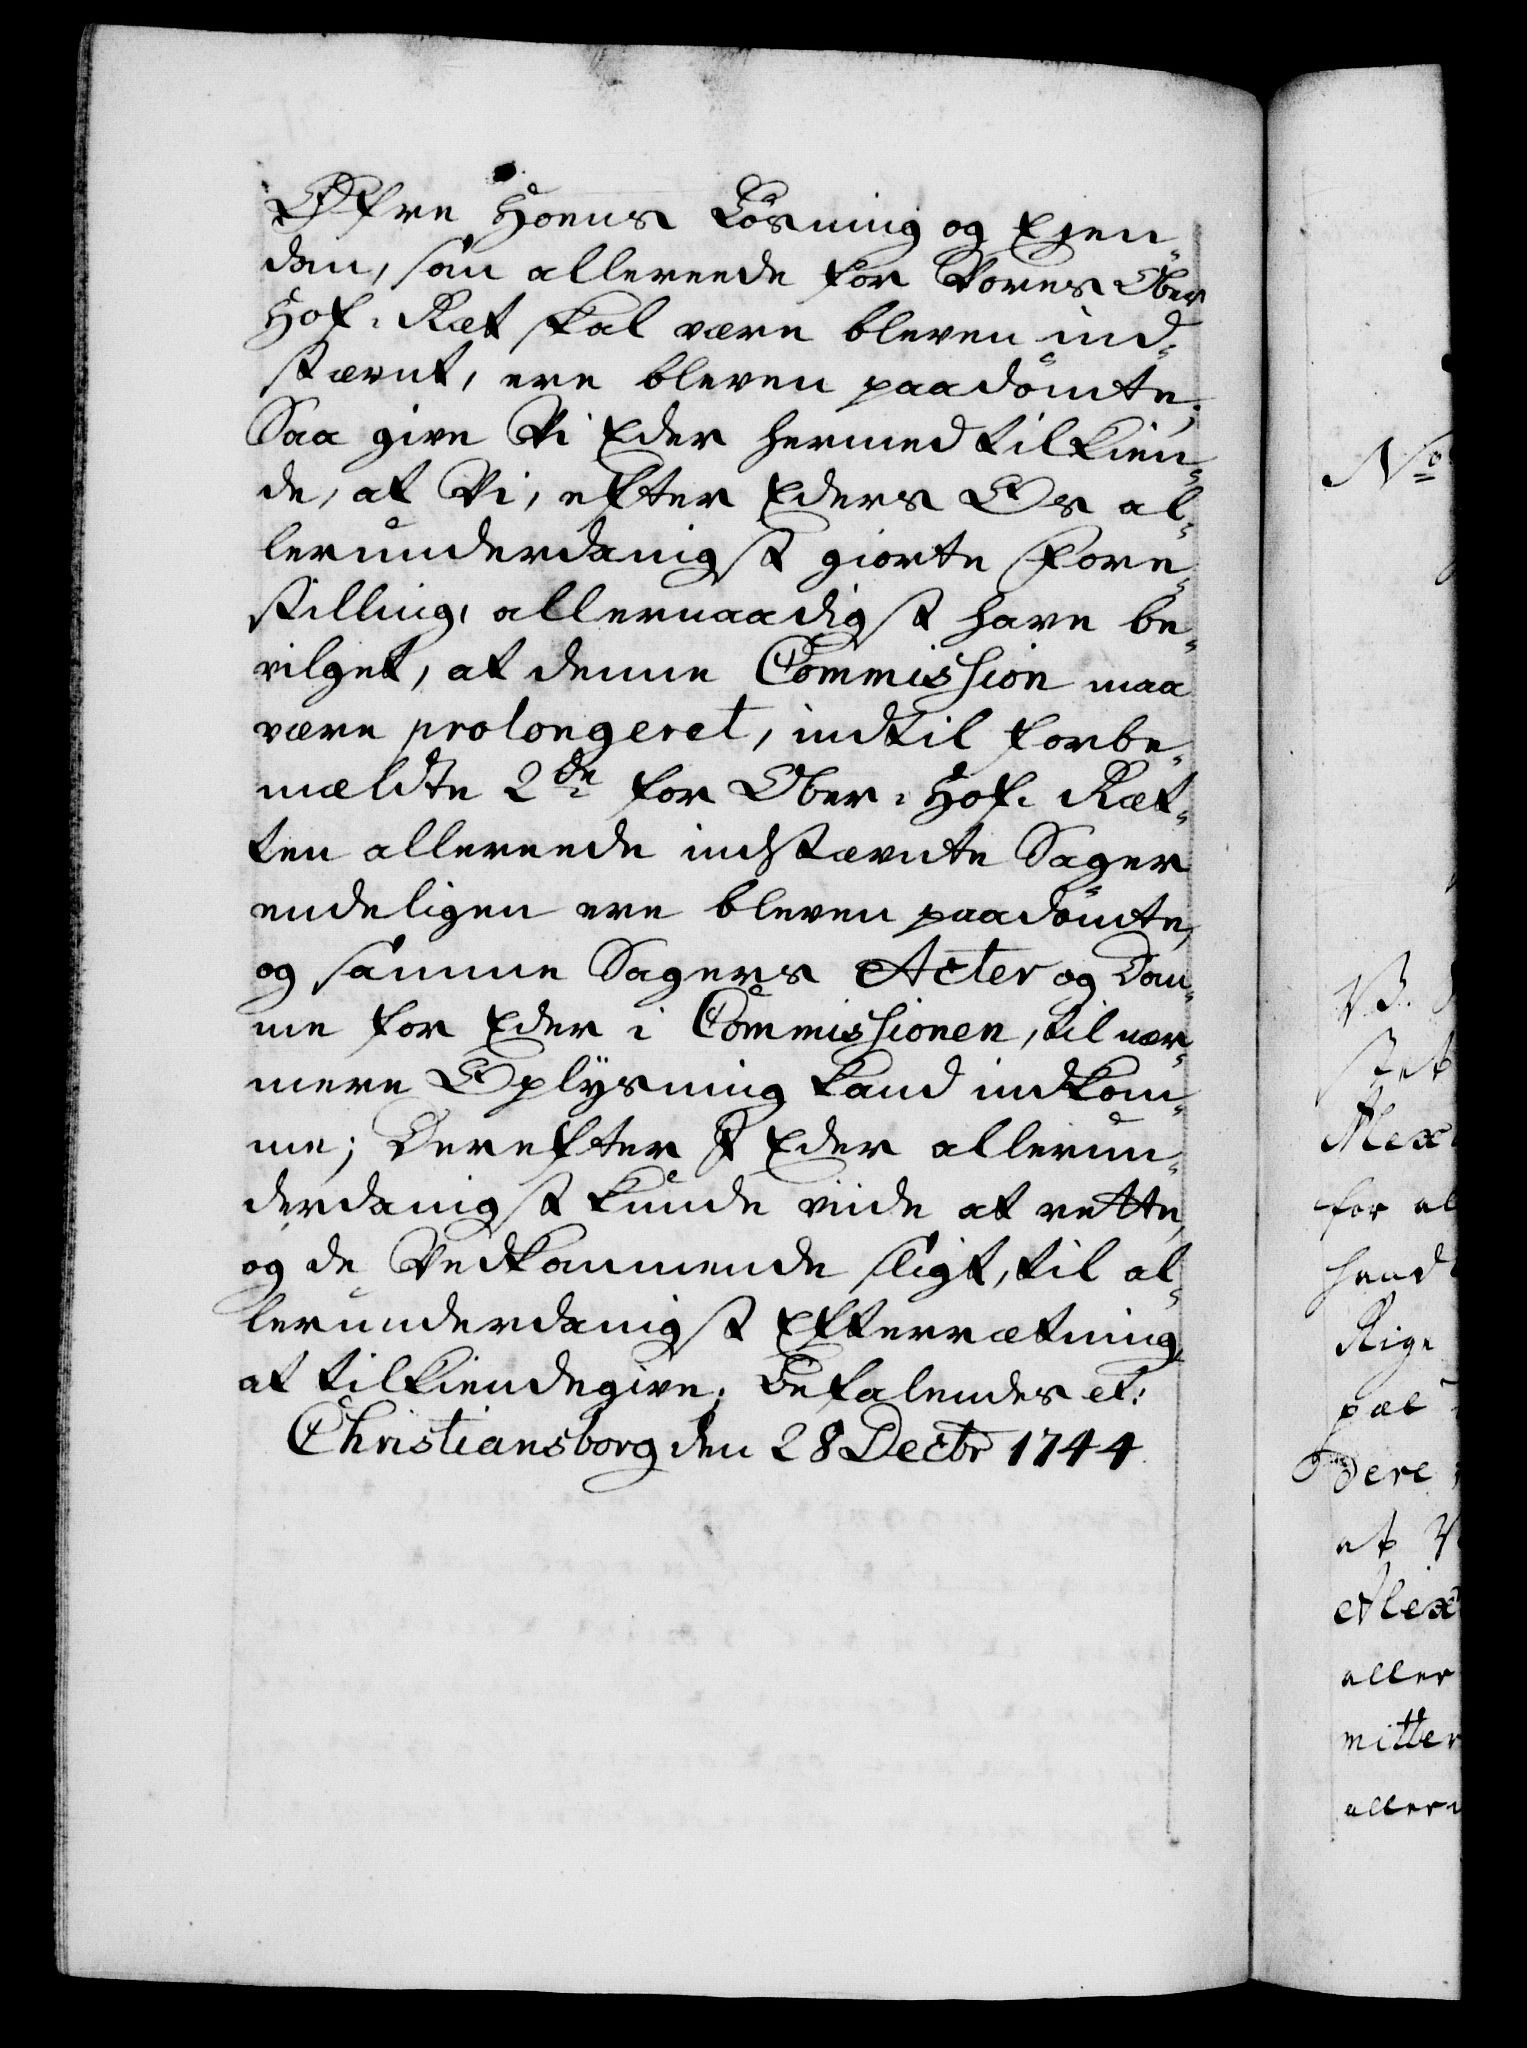 Øfre Hoens Løsning og Ejen-
dom, som allereede for Vores Ober
Hof-Ræt skal være bleven ind-
stævnt, ere bleven paadömte;
Saa give Vi Eder hermed tilkien-
de, at Vi, efter Eders Os al-
lerunderdanigst giorte Fore-
stilling, allernaadigst have be-
vilget, at denne Commission maa
være prolongeret, indtil forbe-
mældte 2de for Ober-Hof-Ræt-
ten allereede indstævnte Sager
endeligen ere bleven paadömte,
og samme Sagers Acter og Dom-
me for Eder i Commissionen, til nær-
mere Oplysning kand indkom-
me; Derefter I Eder allerun-
derdanigst kunde viide at rette,
og de Vedkommende sligt, til al-
lerunderdanigst Efterrætning,
at tilkiendegive. Befalendes etc:
Christiansborg den 28 Decbr 1744
No
Alex
for al
haand
Rige
pae
dere
at V
Alex
aller
mitter
aller